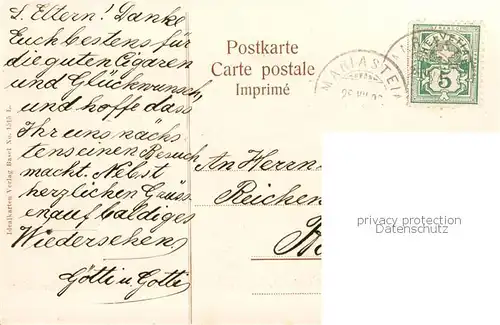 L. Eltern! Danke
Euch bestens für
die guten Cigaren
und Glückwunsch,
und hoffe dass
Ihr uns nächs-
tens einen Besuch
macht. Nebst
herzlichen Grüss-
en auf baldiges
Wiedersehen
Götti u. Gotti
Idealkarten Verlag Basel No.
Postkarte
Carte postale
Imprimé
MARIASTEIN
HELVETIA
5
An Herrn
Reichen
privacy protection
Datenschutz